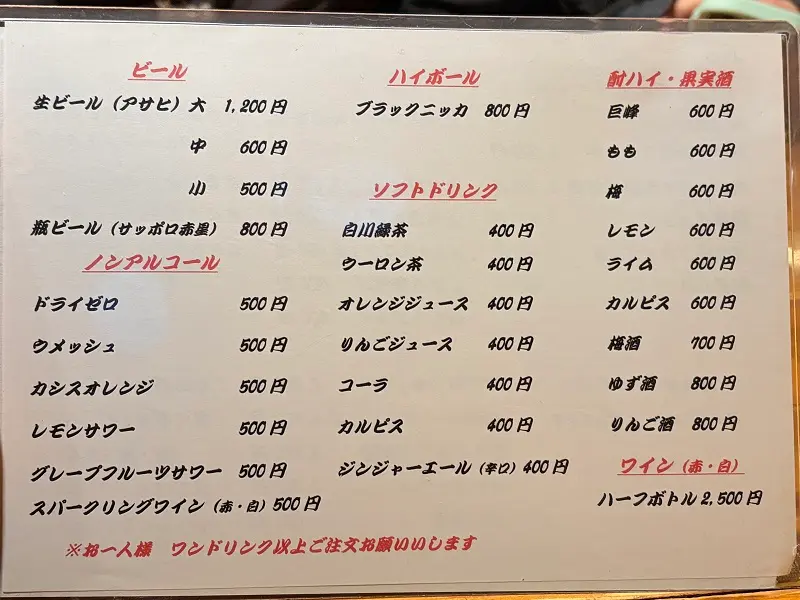 ビール
生ビール（アサヒ）大 1,200円
中 600円
小 500円
瓶ビール（サッポロ赤星） 800円
ノンアルコール
ドライゼロ 500円
ウメッシュ 500円
カシスオレンジ 500円
レモンサワー 500円
グレープフルーツサワー 500円
スパークリングワイン（赤・白）500円
ハイボール
ブラックニッカ 800円
ソフトドリンク
白川緑茶 400円
ウーロン茶 400円
オレンジジュース 400円
りんごジュース 400円
コーラ 400円
カルピス 400円
ジンジャーエール（辛口）400円
酎ハイ・果実酒
巨峰 600円
もも 600円
梅 600円
レモン 600円
ライム 600円
カルピス 600円
梅酒 700円
ゆず酒 800円
りんご酒 800円
ワイン（赤・白）
ハーフボトル 2,500円
※お一人様 ワンドリンク以上ご注文お願いいします